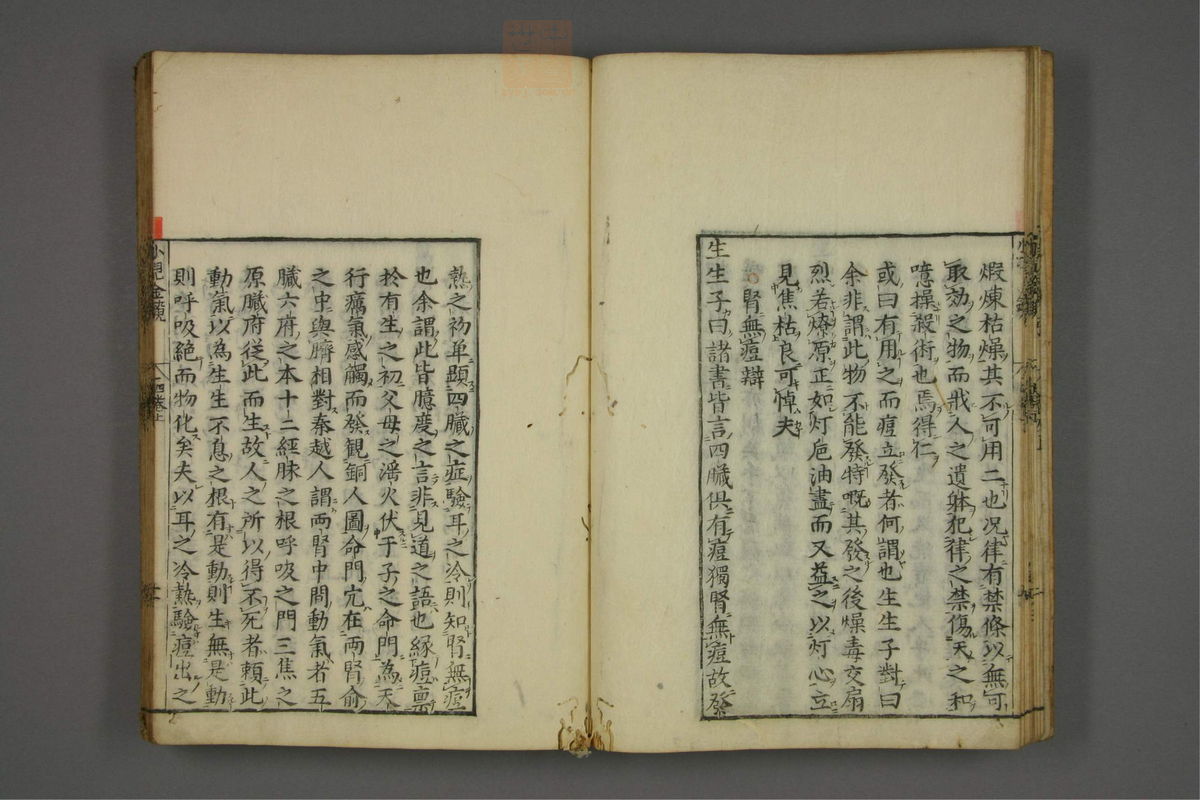 煆煉枯燥其不可用二也况律有禁條以無可
取効之物而戕人之遺躰犯律之禁傷天之和
噫操殺術也焉得仁
或曰有用之而痘立發者何謂也生生子對曰
余非謂此物不能發特嘅其發之後燥毒交扇
烈若燎原正如灯巵油盡而又益之以灯心立
見焦枯良可悼夫
腎無痘辯
生生子曰諸書皆言四臟俱有痘獨腎無痘故發
熱之初单題四臟之症驗耳之冷則知腎無痘
也余謂此皆臆度之言非見道之語也緣痘禀
於有生之初父母之滛火伏于子之命門為天
行癘氣感觸而發観銅人圖命門宂在兩腎俞
之中與臍相對秦越人謂兩腎中間動氣者五
臟六府之本十二經脉之根呼吸之門三焦之
原臟府從此而生故人之所以得不死者頼此
動氣以為生生不息之根有是動則生無是動
則呼吸絶而物化矣夫以耳之冷熱驗痘出之
小兒金鏡
四卷上